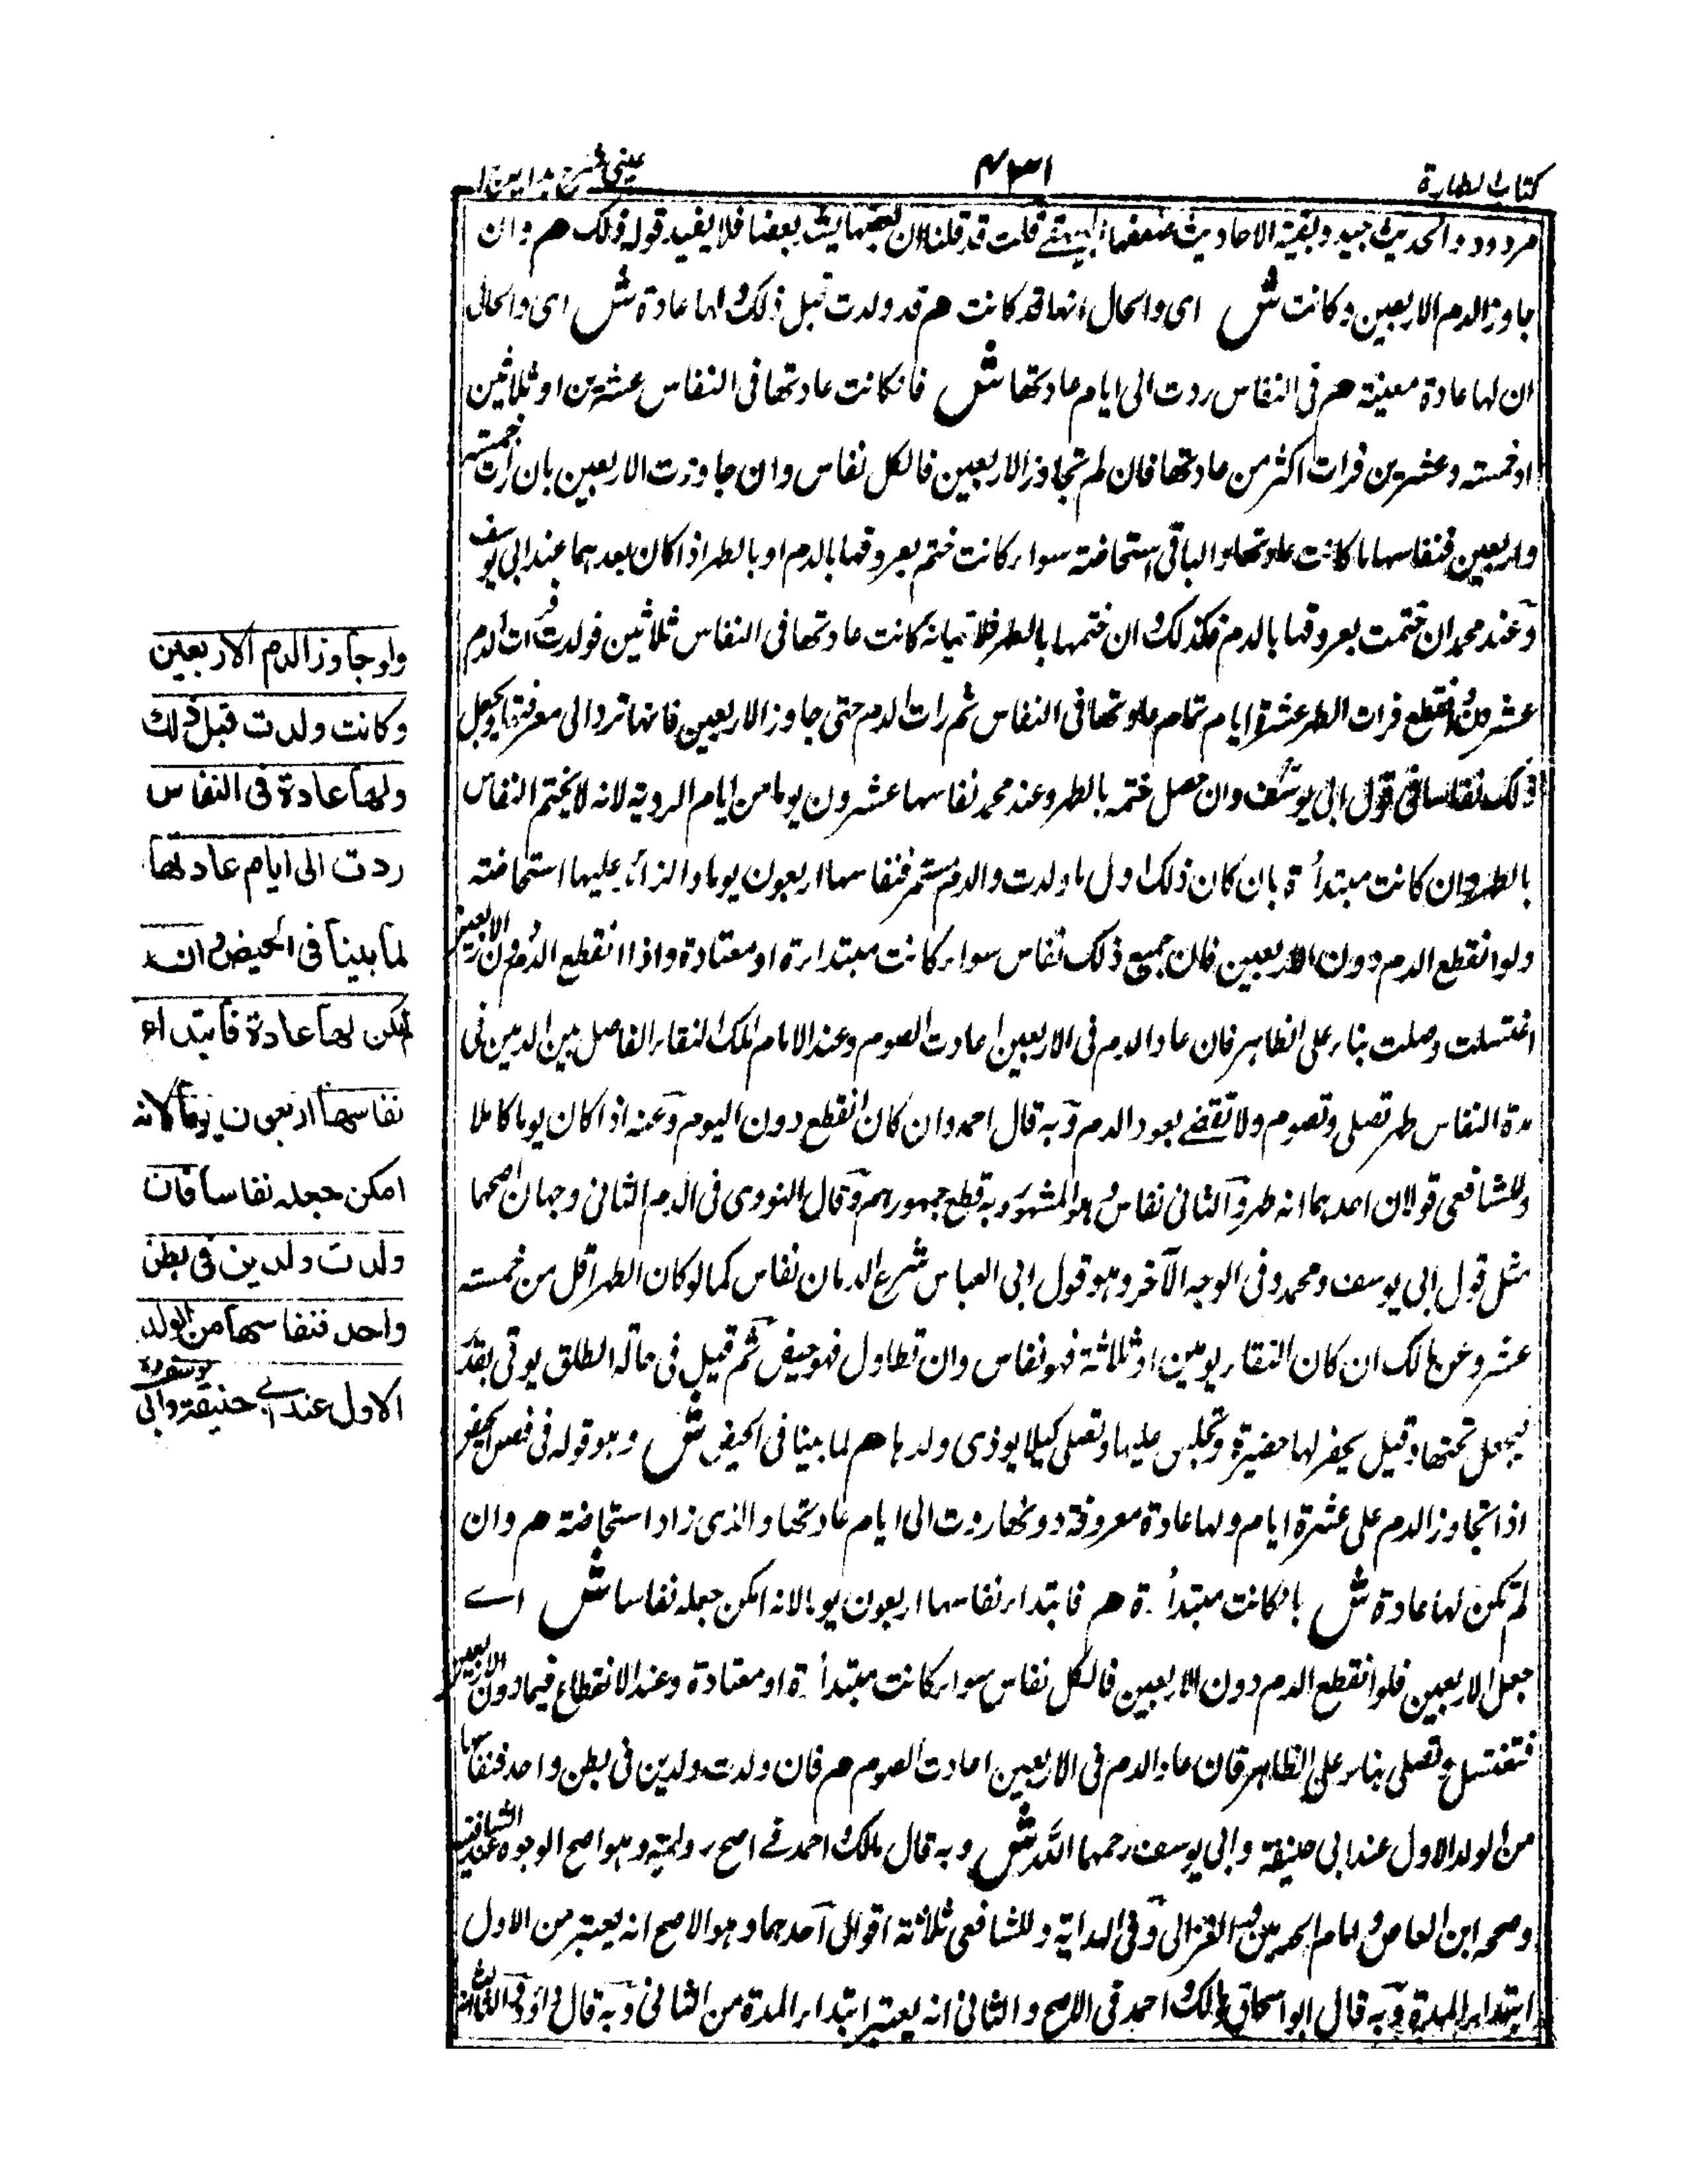 كتاب الطهارة
٤٣١
عيني شرح هداية ج ١
مردود والحديث جيد وبقية الاحاديث ضعفها البيهقي قلت قد قلنا ان بعضها يشد بعضا فلا يفيد قوله ذلك هم وان
جاوز الدم الاربعين وكانت ش اى والحال انها قد كانت هم قد ولدت قبل ذلك ولها عادة ش اى والحال
ان لها عادة معينة هم فى النفاس ردت الى ايام عادتها ش فانكانت عادتها فى النفاس عشرين او ثلاثين
او خمسة وعشرين فرات اكثر من عادتها فان لم تجاوز الاربعين فالكل نفاس وان جاوزت الاربعين بان رات خمسة
واربعين فنفاسها ما كانت عادتها والباقى استحاضة سواء كانت ختم بعروفها بالدم او بالطهر اذا كان بعدهما عند ابى يوسف
وعند محمد ان ختمت بعروفها بالدم فكذلك وان ختمها بالطهر فلا بيانه كانت عادتها فى النفاس ثلاثين فولدت فرات الدم
عشرون وانقطع فرات الطهر عشرة ايام تمام عادتها فى النفاس ثم رات الدم حتى جاوز الاربعين فانها ترد الى معرفتها ويجعل
ذلك نفاسا فى قول ابى يوسف وان حصل ختمه بالطهر وعند محمد نفاسها عشرون يوما من ايام الروية لانه لا يختم النفاس
بالطهر وان كانت مبتدأة بان كان ذلك اول ما ولدت والدم مستمر فنفاسها اربعون يوما والزائد عليها استحاضة
ولو انقطع الدم دون الاربعين فان جميع ذلك نفاس سواء كانت مبتدارة او معتادة واذا انقطع الدم دون الاربعين
اغتسلت وصلت بناء على الظاهر فان عاد الدم فى الاربعين اعادت الصوم وعند الامام مالك النقاء الفاصل بين الدمين فى
مدة النفاس طهر تصلى وتصوم ولا تقضے بعود الدم وبه قال احمد وان كان انقطع دون اليوم وعنه اذا كان يوما كاملا
وللشافعى قولان احدهما انه طهر والثانى نفاس وهو المشهور وبه قطع جمهورهم وقال النووى فى الدم الثانى وجهان اصحها
مثل قول ابى يوسف ومحمد وفى الوجه الآخر وهو قول ابى العباس شرع الدمان نفاس كما لو كان الطهر اقل من خمسة
عشر وعن مالك ان كان النقاء يومين او ثلاثة فهو نفاس وان تطاول فهو حيض ثم قيل فى حالة الطلق يوتى بقدر
فيجعل تحتها وقيل يحفر لها حفيرة وتجلس عليها وتصلى كيلا يوذى ولدها هم لما بينا فى الحيض ش وهو قوله فى فصل الحيض
اذا تجاوز الدم على عشرة ايام ولها عادة معروفة دونها ردت الى ايام عادتها والذى زاد استحاضة هم وان
لم تكن لها عادة ش بانكانت مبتدأة هم فابتداء نفاسها اربعون يوما لانه امكن جعله نفاسا ش اے
جعل الاربعين فلو انقطع الدم دون الاربعين فالكل نفاس سواء كانت مبتدأة او معتادة وعند الانقطاع فيما دون الاربعين
فتغتسل وتصلى بناء على الظاهر فان عاد الدم فى الاربعين اعادت الصوم هم فان ولدت ولدين فى بطن واحد فنفاسها
من الولد الاول عند ابى حنيفة وابى يوسف رحمهما الله ش وبه قال مالك واحمد فے اصح روايتيه وهو اصح الوجوه عند الشافعية
وصححه ابن العاص وامام الحرمين والغزالى وفى الهداية وللشافعى ثلاثة اقوال آحدهما وهو الاصح انه يعتبر من الاول
ابتداء المدة وبه قال ابو اسحاق ومالك واحمد فى الاصح والثانى انه يعتبر ابتداء المدة من الثانى وبه قال داود والثالث انه
ولو جاوز الدم الاربعين
وكانت ولدت قبل ذلك
ولها عادة فى النفاس
ردت الى ايام عادتها
لما بينا فى الحيض وان
لم يكن لها عادة فابتداء
نفاسها اربعون يوما لانه
امكن جعله نفاسا فان
ولدت ولدين فى بطن
واحد فنفاسها من الولد
الاول عند ابي حنيفة وابى يوسف